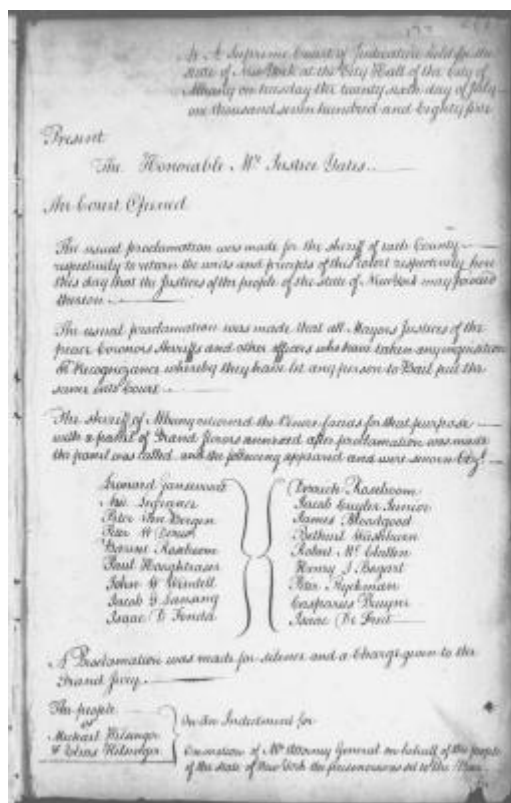 At A Supreme Court of Judicature held for the
State of New York at the City Hall of the City of
Albany on tuesday the twenty sixth day of July
one thousand seven hundred and Eighty five
Present
The Honorable Mr Justice Yates
The Court Opened
The usual proclamation was made for the sheriff of each County
respectively to return the writs and precepts of this Court respectively
this day that the Justices of the people of the State of New York may proceed
thereon
The usual proclamation was made that all Mayors Justices of the
peace Coronors Sheriffs and other officers who have taken any inquisition
Or Recognizance whereby they have let any person to Bail put the
same into Court
The sheriff of Albany returned the Venire facias for that purpose
with a pannel of Grand Jurors annexed after proclamation was made
the panel was called and the following appeared and were sworn
Leonard Gansevoort
Peter Van Bergen
Peter W
Roseboom
Paul Hooghtraser
John Wendell
Jacob G Lansing
Isaac D Fonda
Roseboom
Jacob Cuyler Junior
James Bloodgood
Bethuel Washburn
Robert Mc Clallen
Henry I Bogart
Peter Ryckman
Casparus Pruyn
Isaac De Freet
A Proclamation was made for silence and a Charge given to the
Grand Jury
The people
Michael
& Elias
On An Indictment for
On motion of Mr Attorney General on behalf of the people
of the State of New York the prisoners set to the Bar